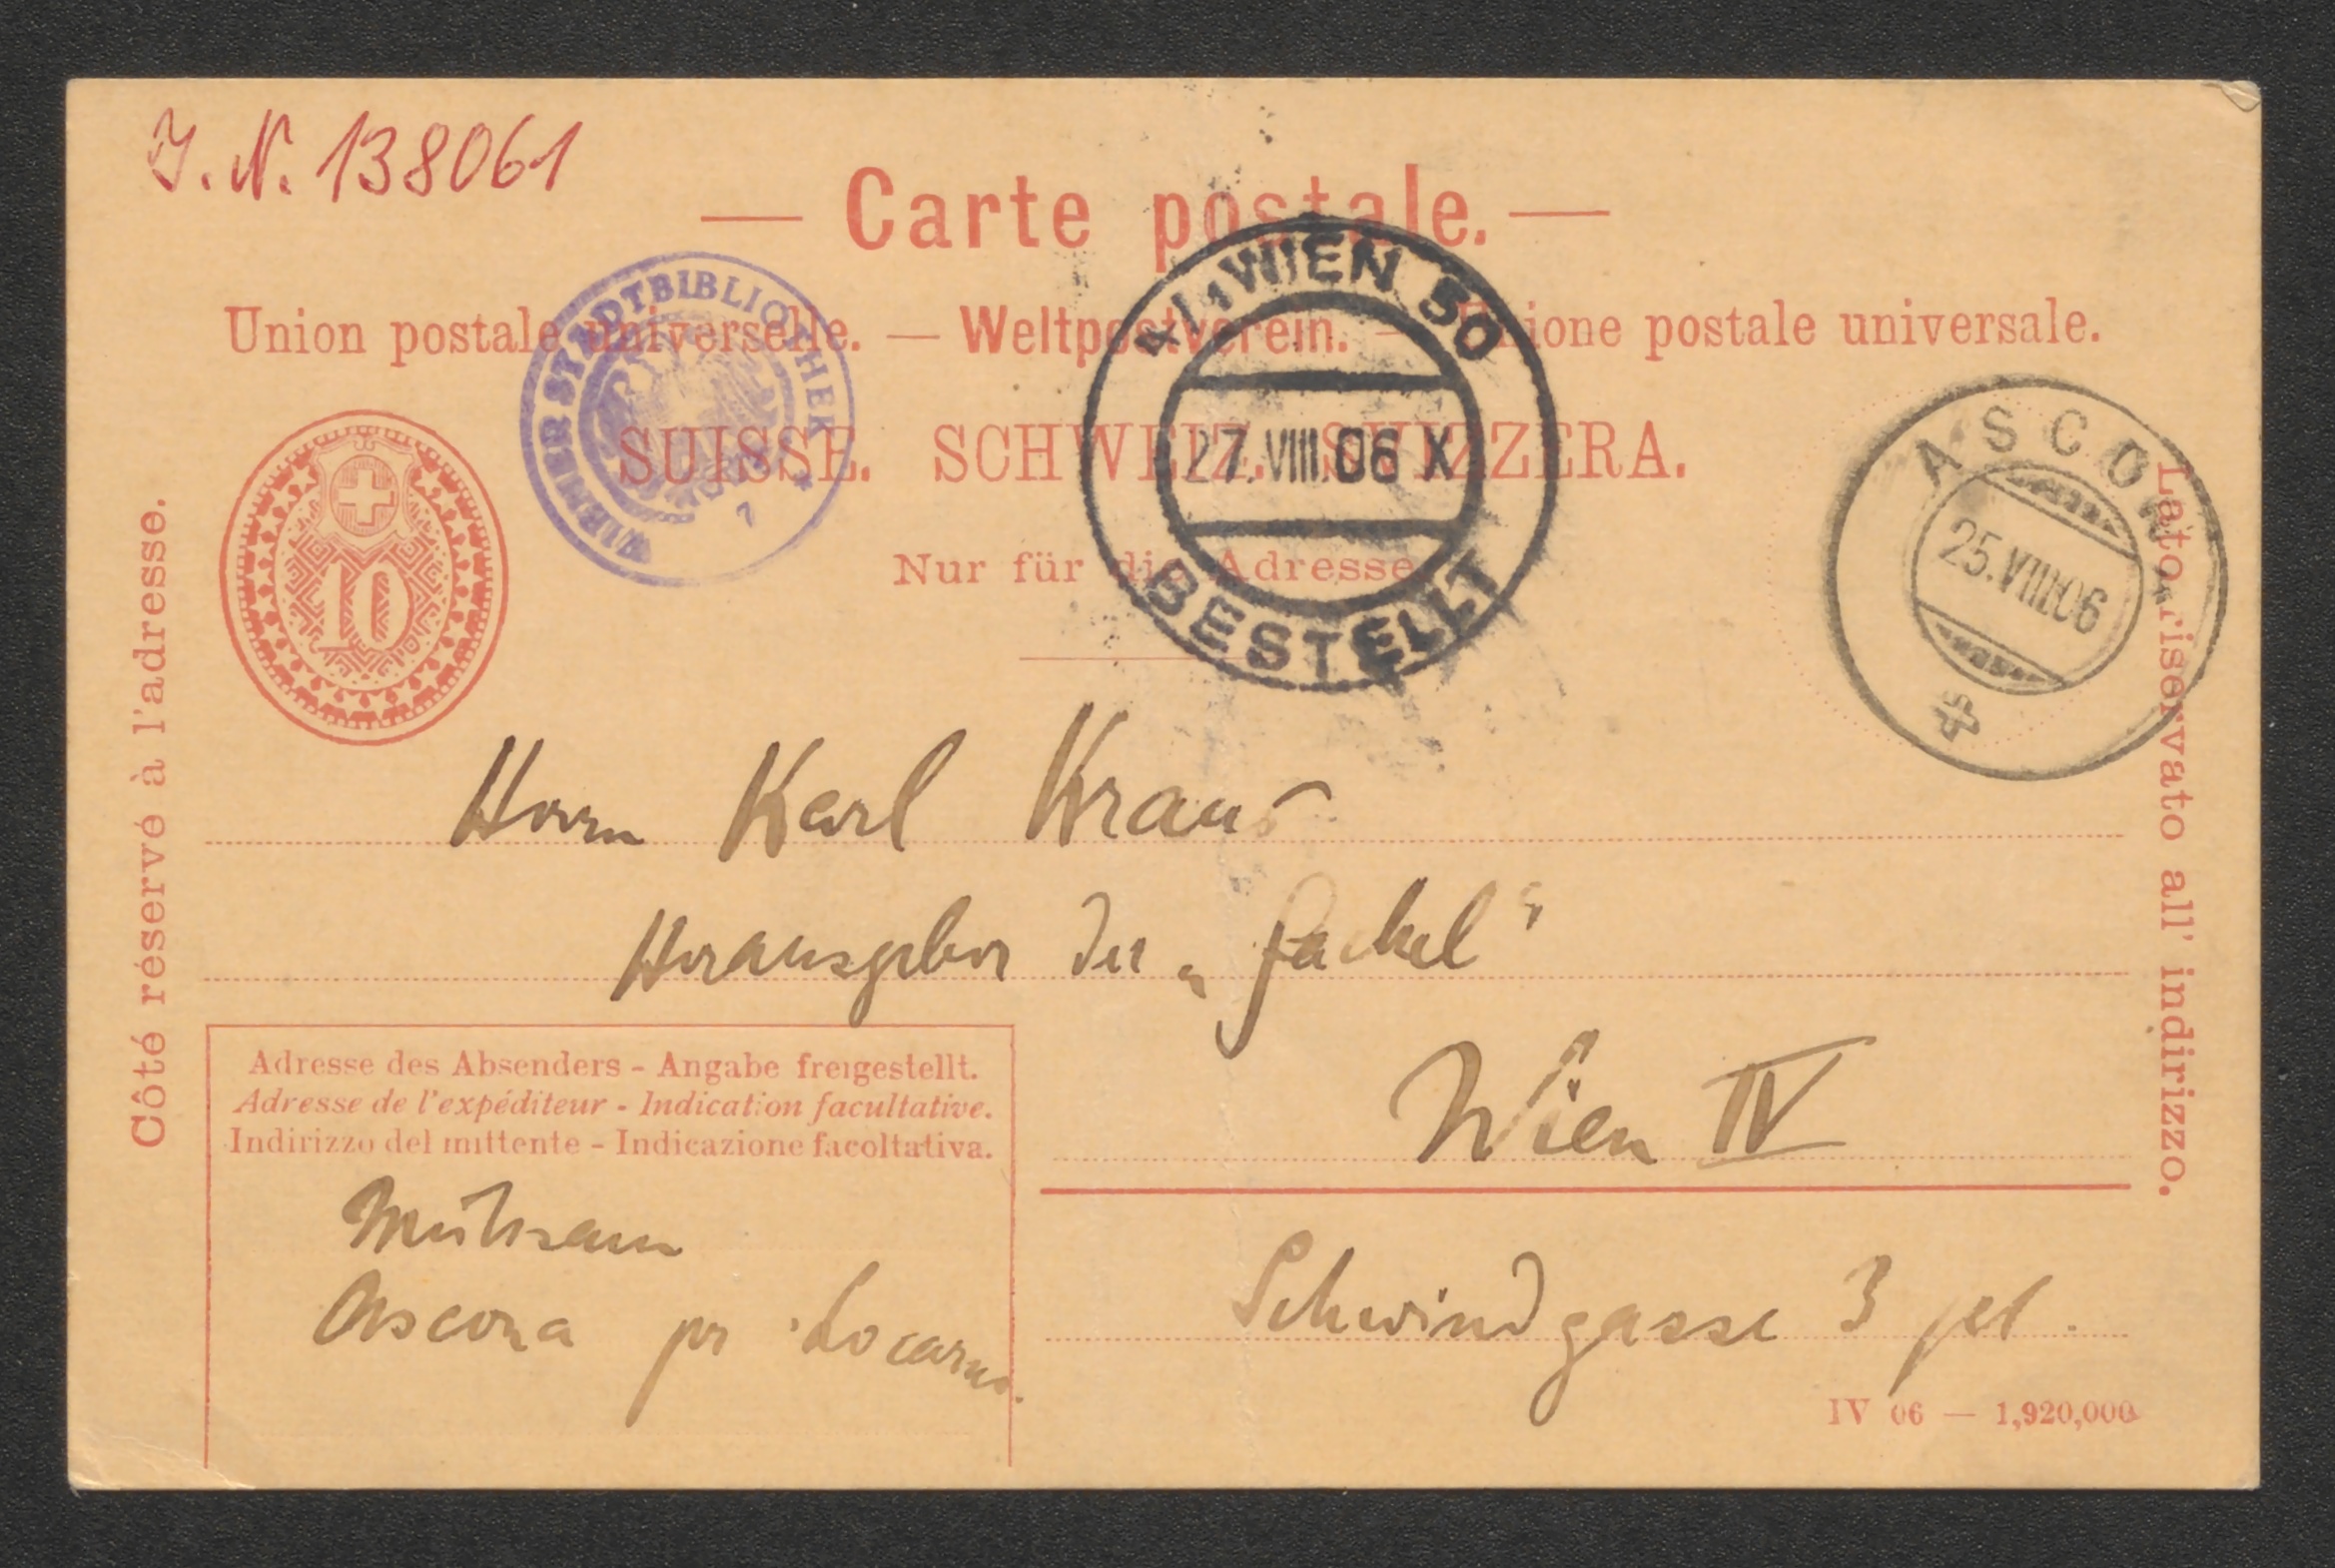 J. N. 138061
— Carte postale. —
Union postale universelle. — Weltpostverein. — Unione postale universale.
SUISSE. SCHWEIZ. SVIZZERA.
Nur für die Adresse
WIENER STADTBIBLIOTHEK
10
4/1 WIEN 50
27.VIII.06 X
BESTELLT
ASCONA
25.VIII.06
Côté réservé à l'adresse.
Lato riservato all' indirizzo.
Herrn Karl Kraus
Herausgeber der „Fackel“
Wien IV
Schwindgasse 3 pt.
Adresse des Absenders - Angabe freigestellt.
Adresse de l'expéditeur - Indication facultative.
Indirizzo del mittente - Indicazione facoltativa.
Mühsam
Ascona pr Locarno.
IV 06 — 1,920,000